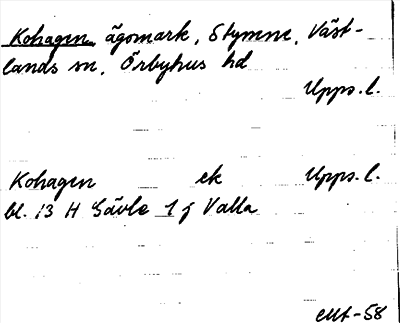 Kohagen ägomark, Stymne, Väst-
lands sn, Örbyhus hd
Upps. l.
Kohagen ek Upps. l.
bl. 13 H Gävle 1 j Valla
EUt-58